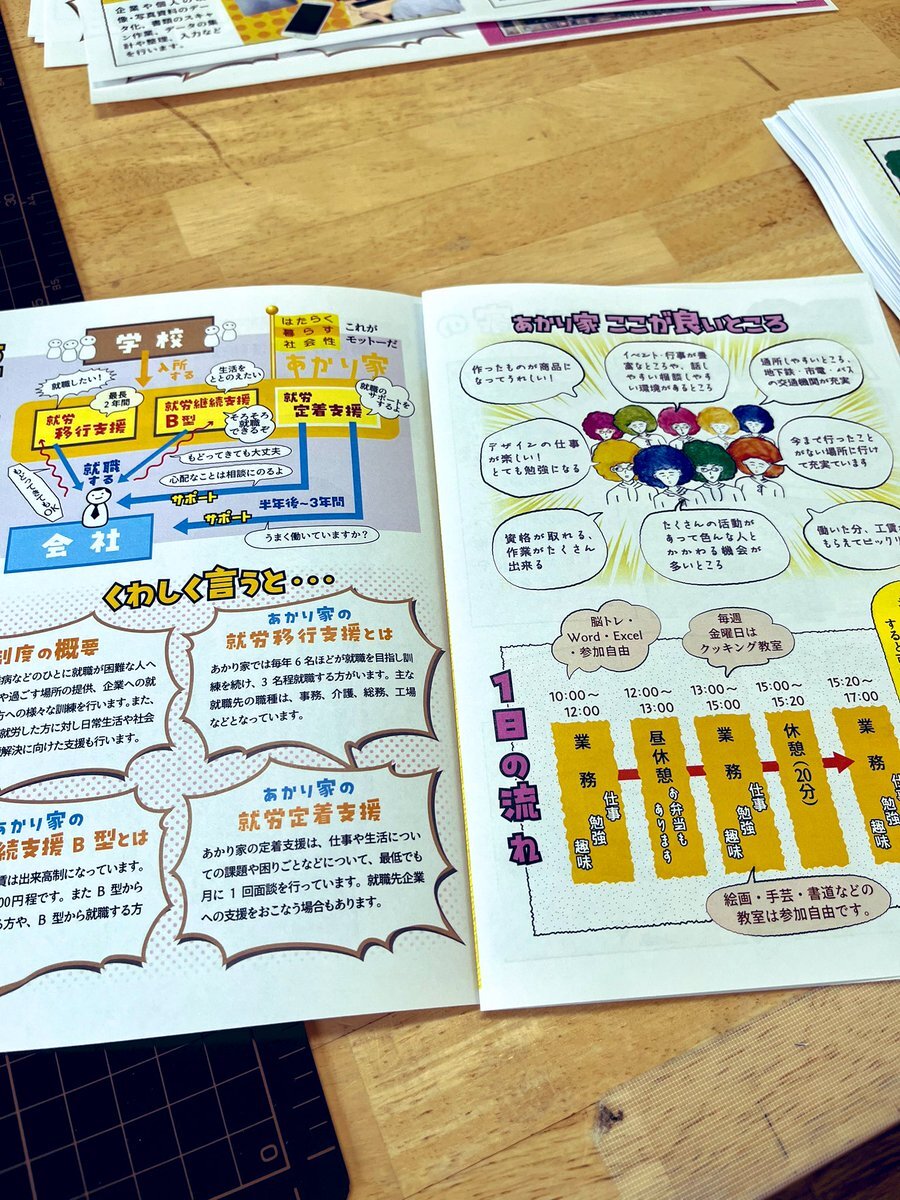 企業や個人の
像・写真資料のデー
タ化、書類のスキャ
ン作業、データの集
計や整理、入力など
を行います。
学校
入所
する
はたらく
暮らす
社会性
これが
モットーだ
あかり家
就職したい！
最長
2年間
生活を
ととのえたい
就労
移行支援
就労継続支援
B型
そろそろ
就職
できるぞ
就労
定着支援
就職の
サポートを
するよ
就職
する
もどってきても大丈夫
心配なことは相談にのるよ
もどってきてもOK
サポート
サポート
半年後～3年間
うまく働いていますか？
会社
くわしく言うと・・・
制度の概要
病などのひとに就職が困難な人へ
や過ごす場所の提供、企業への就
方への様々な訓練を行います。また、
就労した方に対し日常生活や社会
解決に向けた支援も行います。
あかり家の
就労移行支援とは
あかり家では毎年6名ほどが就職を目指し訓
練を続け、3名程就職する方がいます。主な
就職先の職種は、事務、介護、総務、工場
などとなっています。
あかり家の
続支援B型とは
賃は出来高制になっています。
00円程です。またB型から
る方や、B型から就職する方
あかり家の
就労定着支援
あかり家の定着支援は、仕事や生活につい
ての課題や困りごとなどについて、最低でも
月に1回面談を行っています。就職先企業
への支援をおこなう場合もあります。
あかり家 ここが良いところ
作ったものが商品に
なってうれしい！
イベント・行事が豊
富なところや、話し
やすい相談しやす
い環境があるところ
通所しやすいところ、
地下鉄・市電・バス
の交通機関が充実
デザインの仕事
が楽しい！
とても勉強になる
今まで行ったこと
がない場所に行け
て充実ています
資格が取れる、
作業がたくさん
出来る
たくさんの活動が
あって色んな人と
かかわる機会が
多いところ
働いた分、工賃が
もらえてビックリ
1日の流れ
脳トレ・
Word・Excel
・参加自由
毎週
金曜日は
クッキング教室
10:00～
12:00
12:00～
13:00
13:00～
15:00
15:00～
15:20
15:20～
17:00
業務
仕事
勉強
趣味
昼休憩
お弁当も
あります
業務
仕事
勉強
趣味
休憩(20分)
業務
仕事
勉強
趣味
絵画・手芸・書道などの
教室は参加自由です。